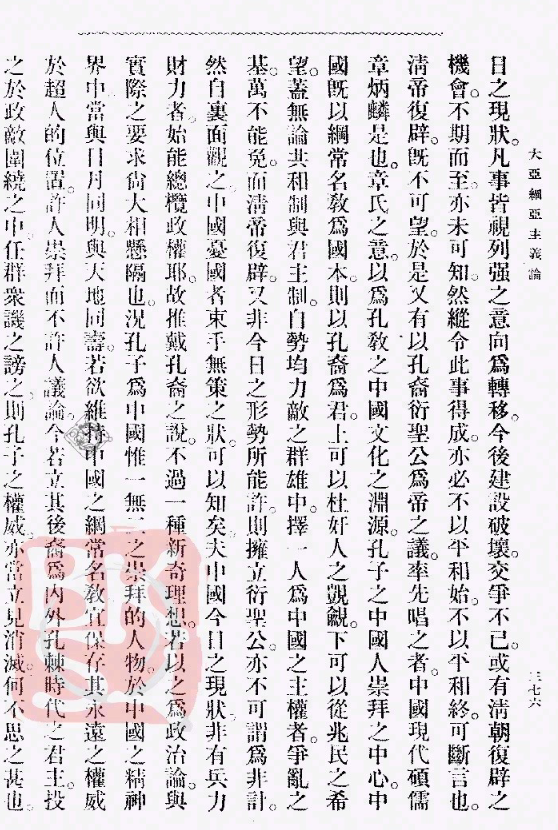 大亞細亞主義論
三七六
日之現狀。凡事皆視列强之意向爲轉移。今後建設破壞。交爭不已。或有清朝復辟之
機會。不期而至。亦未可知。然縱令此事得成。亦必不以平和始。不以平和終。可斷言也。
清帝復辟。既不可望。於是又有以孔裔衍聖公爲帝之議。率先唱之者。中國現代碩儒
章炳麟是也。章氏之意。以爲孔敎之中國文化之淵源。孔子之中國人崇拜之中心。中
國既以綱常名敎爲國本。則以孔裔爲君。上可以杜奸人之覬覦。下可以從兆民之希
望。蓋無論共和制與君主制。自勢均力敵之群雄中。擇一人爲中國之主權者。爭亂之
基。萬不能免。而清帝復辟。又非今日之形勢所能許。則擁立衍聖公。亦不可謂爲非計。
然自裏面觀之。中國憂國者束手無策之狀。可以知矣。夫中國今日之現狀。非有兵力
財力者。始能總攬政權耶。故推戴孔裔之說。不過一種新奇理想。若以之爲政治論。與
實際之要求。尙大相懸隔也。況孔子爲中國惟一無二之崇拜的人物。於中國之精神
界中。當與日月同明。與天地同壽。若欲維持中國之綱常名敎。宜保存其永遠之權威
於超人的位置。許人崇拜而不許人議論。今若立其後裔爲內外孔棘時代之君主。投
之於政敵圍繞之中。任群衆譏之謗之。則孔子之權威。亦當立見消滅。何不思之甚也。